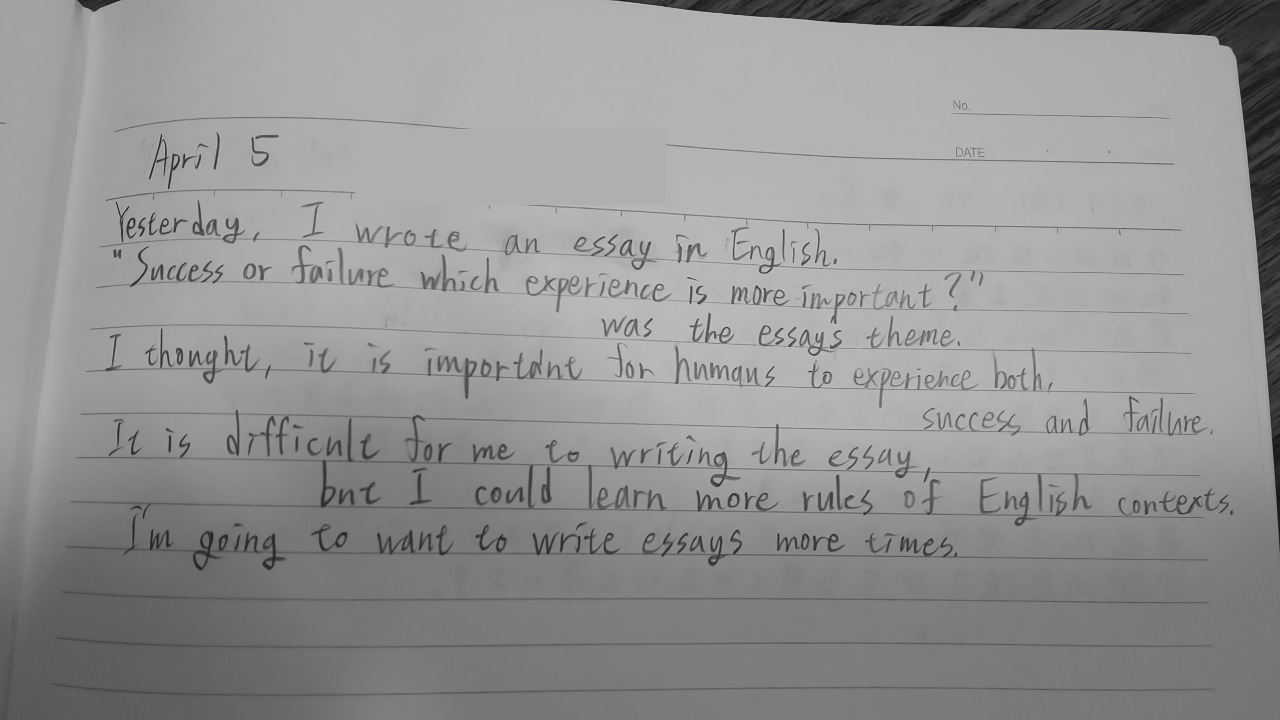 No.
DATE
April 5
Yesterday, I wrote an essay in English.
"Success or failure which experience is more important?"
was the essay's theme.
I thought, it is important for humans to experience both,
success and failure.
It is difficult for me to writing the essay,
but I could learn more rules of English contexts.
I'm going to want to write essays more times.